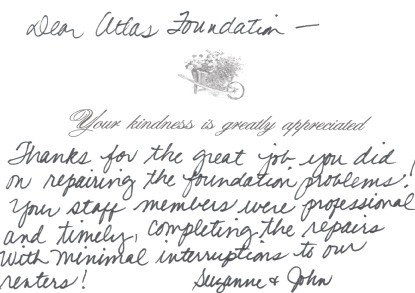 Dear Atlas Foundation —
Your kindness is greatly appreciated
Thanks for the great job you did
on repairing the foundation problems!
Your staff members were professional
and timely, completing the repairs
with minimal interruptions to our
renters! Suzanne & John